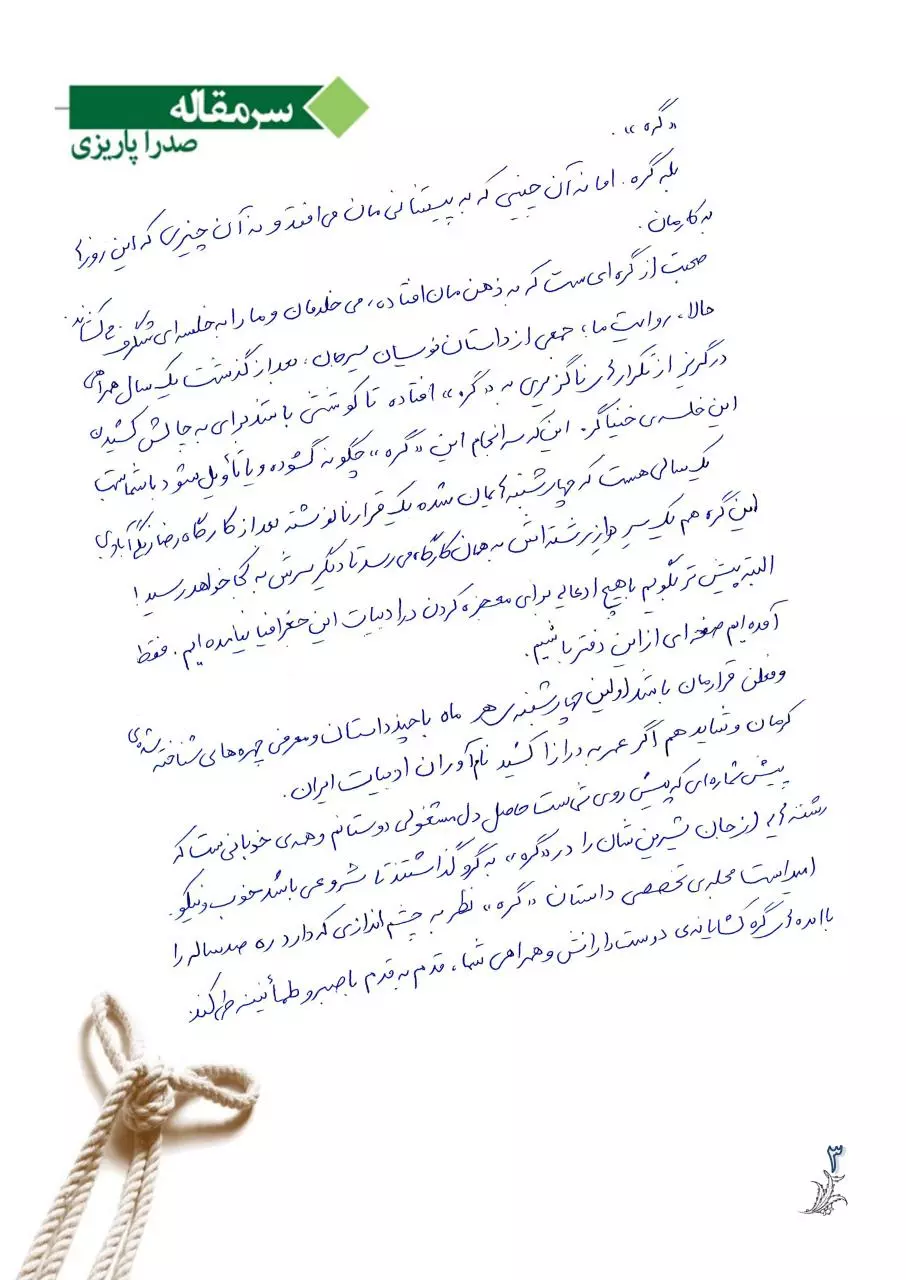 سرمقاله
صدرا پاریزی
«گره».
بله گره. اما نه آن چینی که به پیشانی‌مان می‌افتد و نه آن چیزی که این روزها
به کارمان.
صحبت از گره‌ای ست که به ذهن‌مان افتاده، می‌خلدمان و ما را به خلسه‌ای شگرف می‌کشاند.
حالا، روایت ما، جمعی از داستان نویسان سیرجان، بعد از گذشت یک سال همراهی
در گریز از تکرارهای ناگزیری به «گره» افتاده تا کوششی باشد برای به چالش کشیدن
این خلسه‌ی خنیاگر. این که سرانجام این «گره» چگونه گشوده و یا تأویل شود با شماست
یک سالی هست که چهارشنبه‌هایمان شده یک قرار نانوشته بعد از کارگاه رضا زنگی‌آبادی
این گره هم یک سرِ درازِ رشته‌اش به همان کارگاه می‌رسد تا دیگر سرش به کجا خواهد رسید!
البته پیش‌تر بگویم با هیچ ادعایی برای معجزه کردن در ادبیات این جغرافیا نیامده‌ایم. فقط
آمده‌ایم صفحه‌ای از این دفتر باشیم.
و فعلن قرارمان باشد اولین چهارشنبه‌ی هر ماه با چند داستان و معرفی چهره‌های شناخته شده‌ی
کرمان و شاید هم اگر عمر به درازا کشید نام‌آوران ادبیات ایران.
پیش شماره‌ای که پیش روی شماست حاصل دل‌مشغولی دوستانم و همه‌ی خوبانی ست که
رشته‌هایی از جان شیرین‌شان را در «گره» به گرو گذاشتند تا شروعی باشد خوب و نیکو.
امید است مجله‌ی تخصصی داستان «گره» نظر به چشم‌اندازی که دارد ره صد ساله را
با ایده‌های گره گشایانه‌ی دوست‌دارانش و همراهی شما، قدم به قدم با صبر و طمأنینه طی کند.
۳